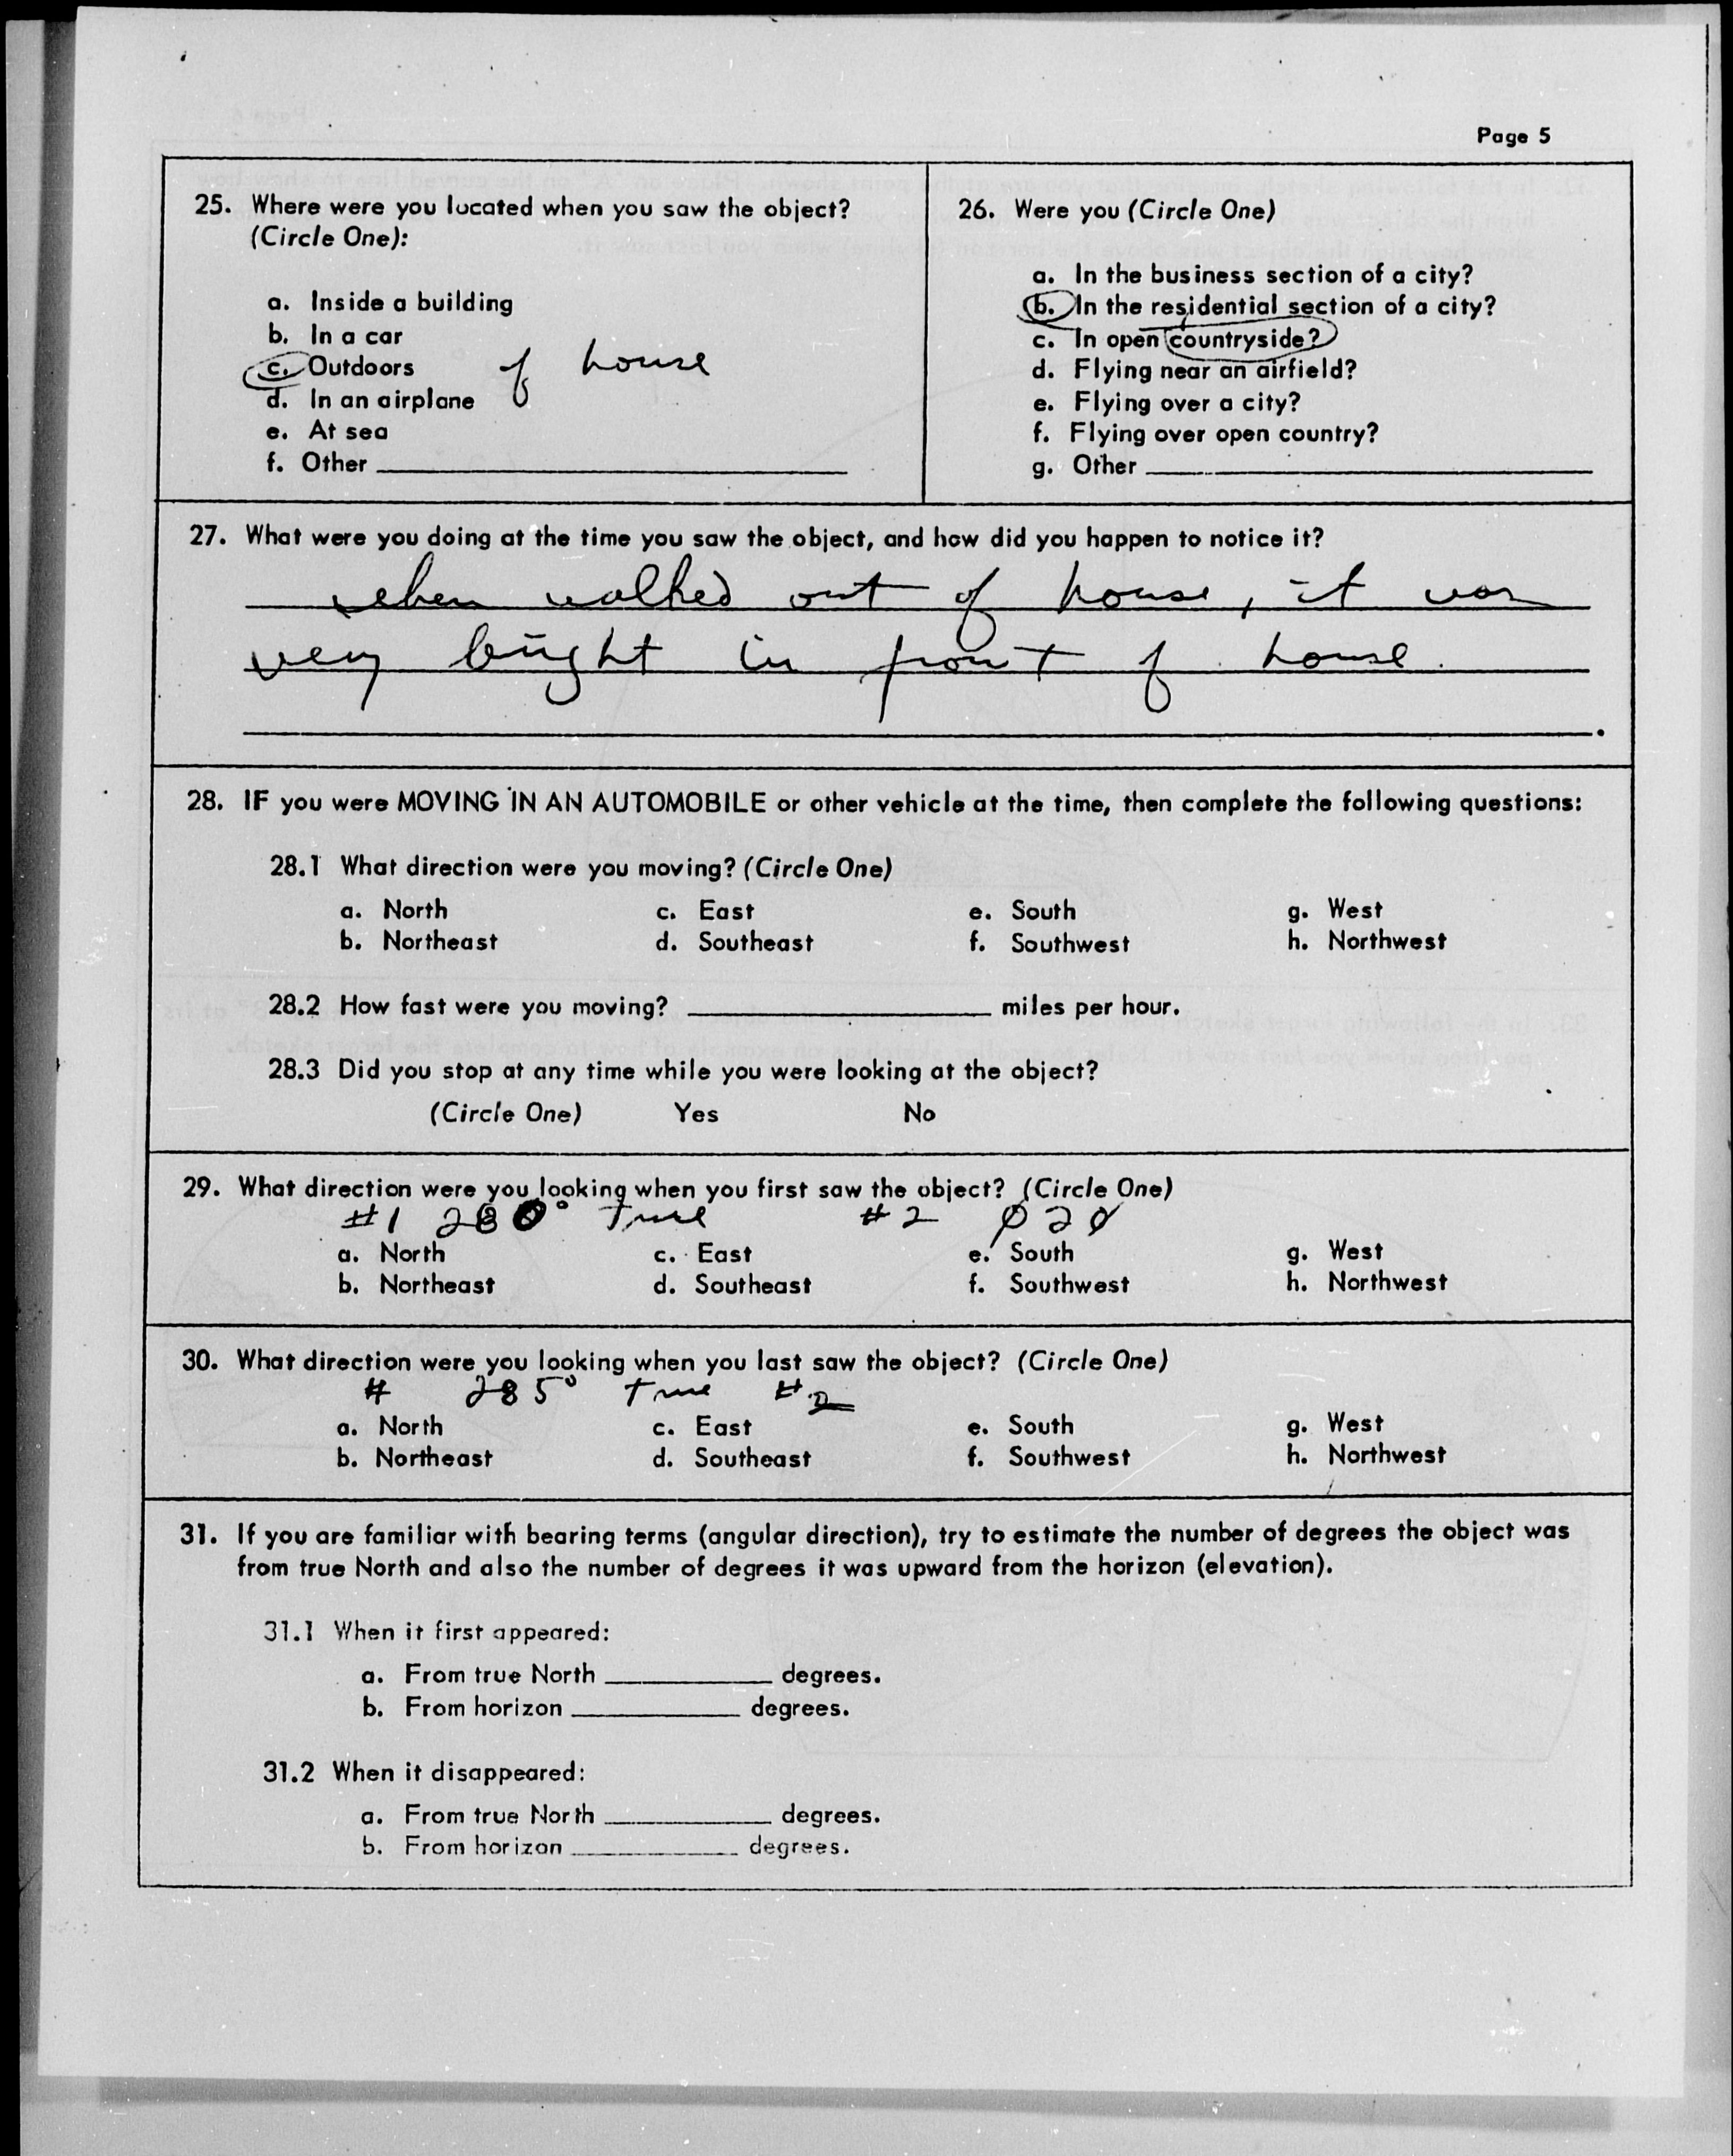 Page 5
25. Where were you located when you saw the object?
(Circle One):
a. Inside a building
b. In a car
c. Outdoors of house
d. In an airplane
e. At sea
f. Other
26. Were you (Circle One)
a. In the business section of a city?
b. In the residential section of a city?
c. In open countryside?
d. Flying near an airfield?
e. Flying over a city?
f. Flying over open country?
g. Other
27. What were you doing at the time you saw the object, and how did you happen to notice it?
when walked out of house, it was
very bright in front of house.
28. IF you were MOVING IN AN AUTOMOBILE or other vehicle at the time, then complete the following questions:
28.1 What direction were you moving? (Circle One)
a. North c. East e. South g. West
b. Northeast d. Southeast f. Southwest h. Northwest
28.2 How fast were you moving? miles per hour.
28.3 Did you stop at any time while you were looking at the object?
(Circle One) Yes No
29. What direction were you looking when you first saw the object? (Circle One)
#1 280° True #2 020
a. North c. East e. South g. West
b. Northeast d. Southeast f. Southwest h. Northwest
30. What direction were you looking when you last saw the object? (Circle One)
# 285° True #2
a. North c. East e. South g. West
b. Northeast d. Southeast f. Southwest h. Northwest
31. If you are familiar with bearing terms (angular direction), try to estimate the number of degrees the object was
from true North and also the number of degrees it was upward from the horizon (elevation).
31.1 When it first appeared:
a. From true North degrees.
b. From horizon degrees.
31.2 When it disappeared:
a. From true North degrees.
b. From horizon degrees.